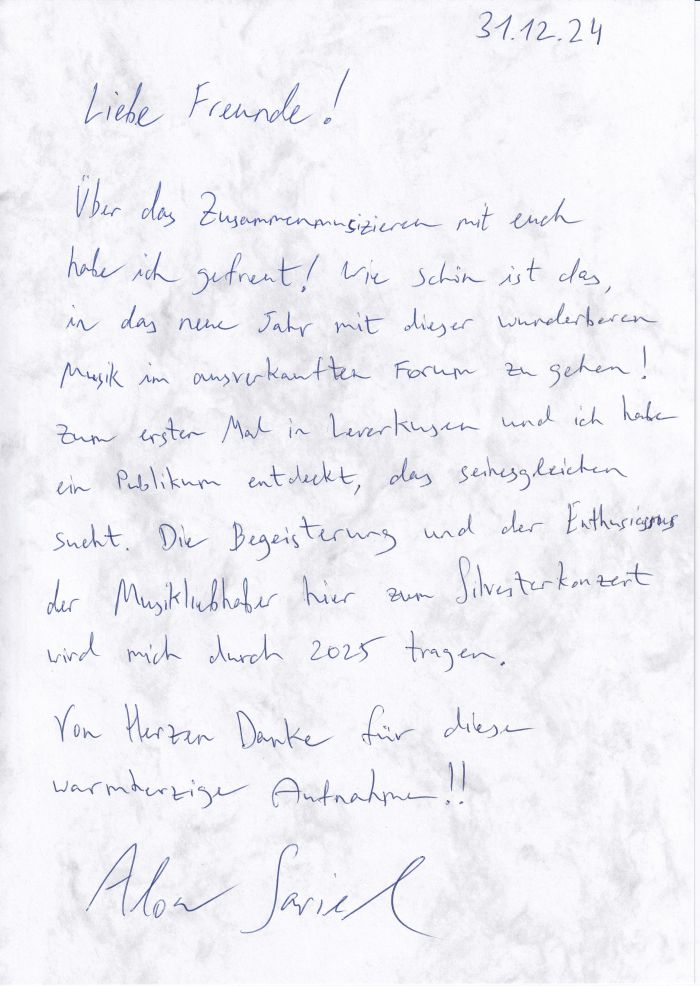 31.12.24
Liebe Freunde!
Über das Zusammenmusizieren mit euch
habe ich gefreut! Wie schön ist das,
in das neue Jahr mit dieser wunderbaren
Musik im ausverkauften Forum zu gehen!
Zum ersten Mal in Leverkusen und ich habe
ein Publikum entdeckt, das seinesgleichen
sucht. Die Begeisterung und der Enthusiasmus
der Musikliebhaber hier zum Silvesterkonzert
wird mich durch 2025 tragen.
Von Herzen Danke für diese
warmherzige Aufnahme!!
Alon Sariel